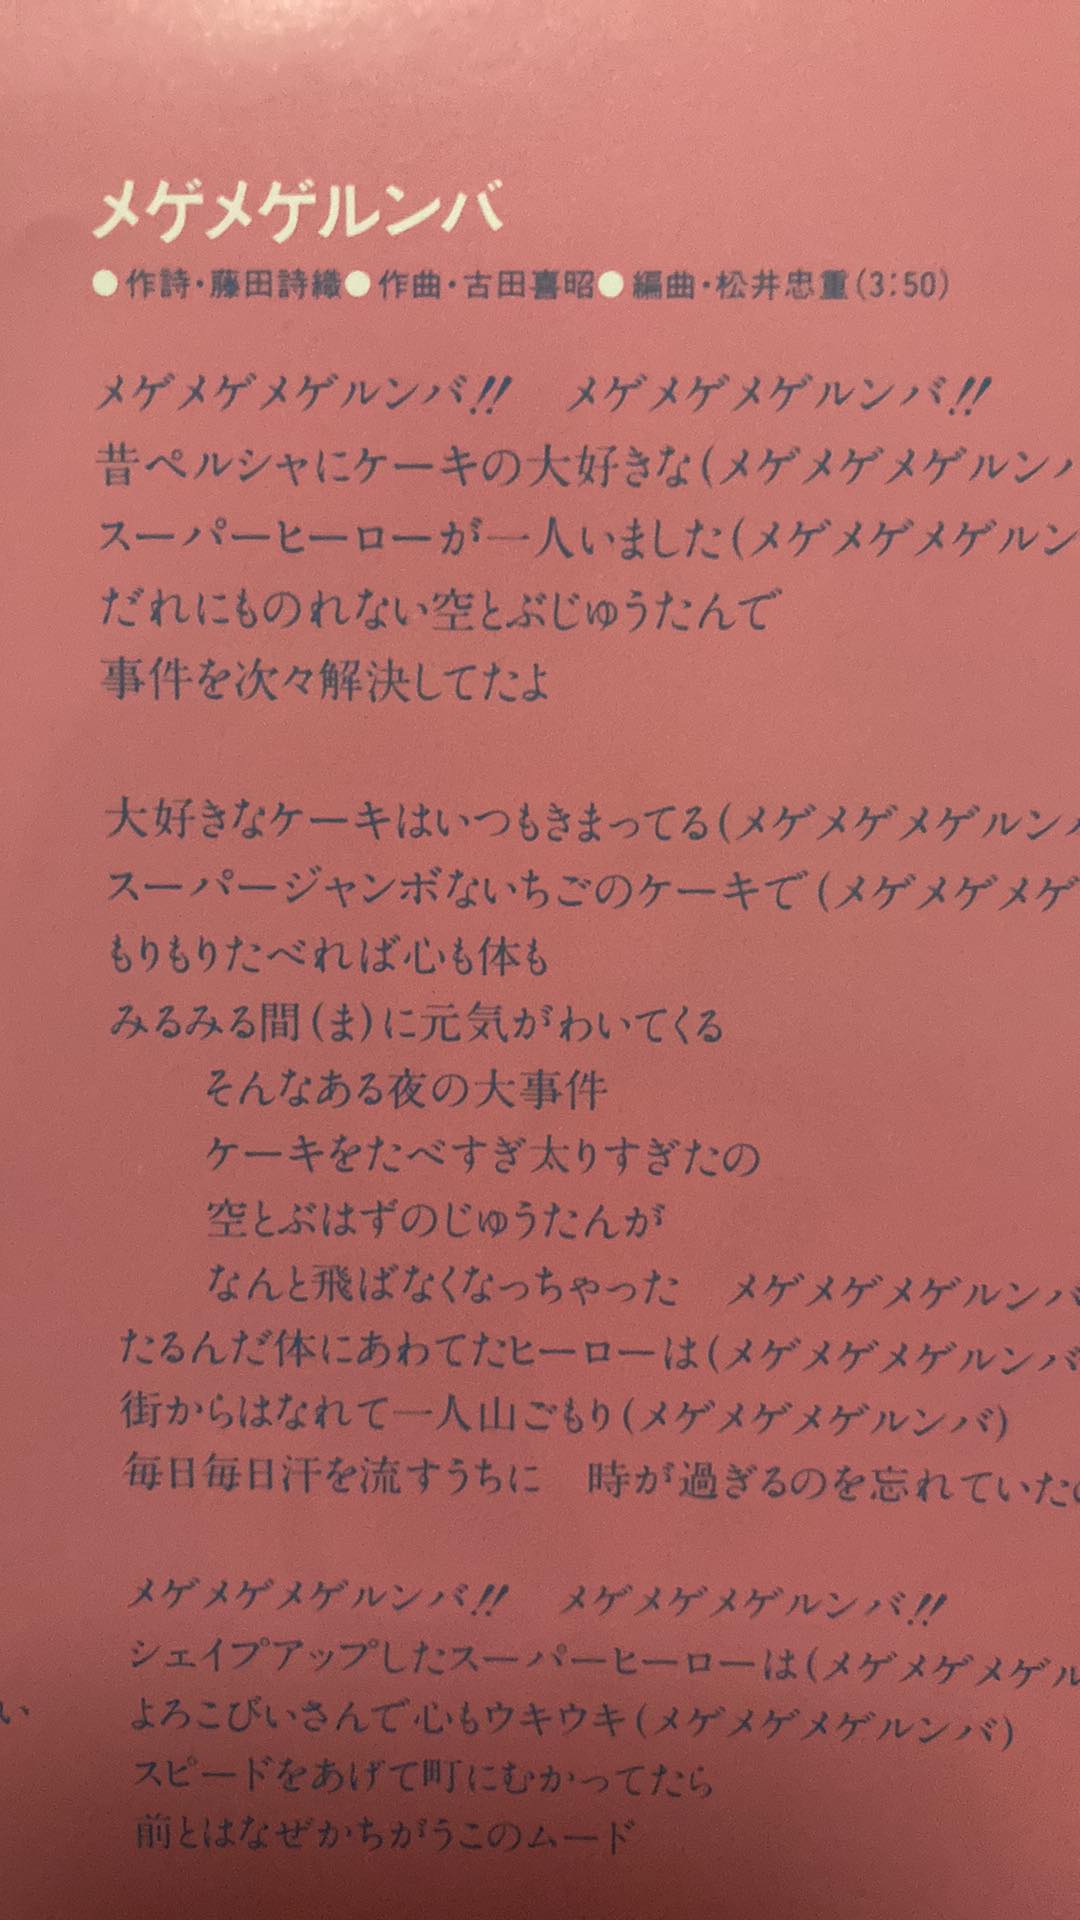 メゲメゲルンバ
●作詩・藤田詩織●作曲・古田喜昭●編曲・松井忠重(3:50)
メゲメゲメゲルンバ!! メゲメゲメゲルンバ!!
昔ペルシャにケーキの大好きな(メゲメゲメゲルン
スーパーヒーローが一人いました(メゲメゲメゲルン
だれにものれない空とぶじゅうたんで
事件を次々解決してたよ
大好きなケーキはいつもきまってる(メゲメゲメゲルン
スーパージャンボないちごのケーキで(メゲメゲメゲ
もりもりたべれば心も体も
みるみる間(ま)に元気がわいてくる
そんなある夜の大事件
ケーキをたべすぎ太りすぎたの
空とぶはずのじゅうたんが
なんと飛ばなくなっちゃった メゲメゲメゲルンバ
たるんだ体にあわてたヒーローは(メゲメゲメゲルンバ
街からはなれて一人山ごもり(メゲメゲメゲルンバ)
毎日毎日汗を流すうちに 時が過ぎるのを忘れていた
メゲメゲメゲルンバ!! メゲメゲメゲルンバ!!
シェイプアップしたスーパーヒーローは(メゲメゲメゲル
よろこびいさんで心もウキウキ(メゲメゲメゲルンバ)
い
スピードをあげて町にむかってたら
前とはなぜかちがうこのムード